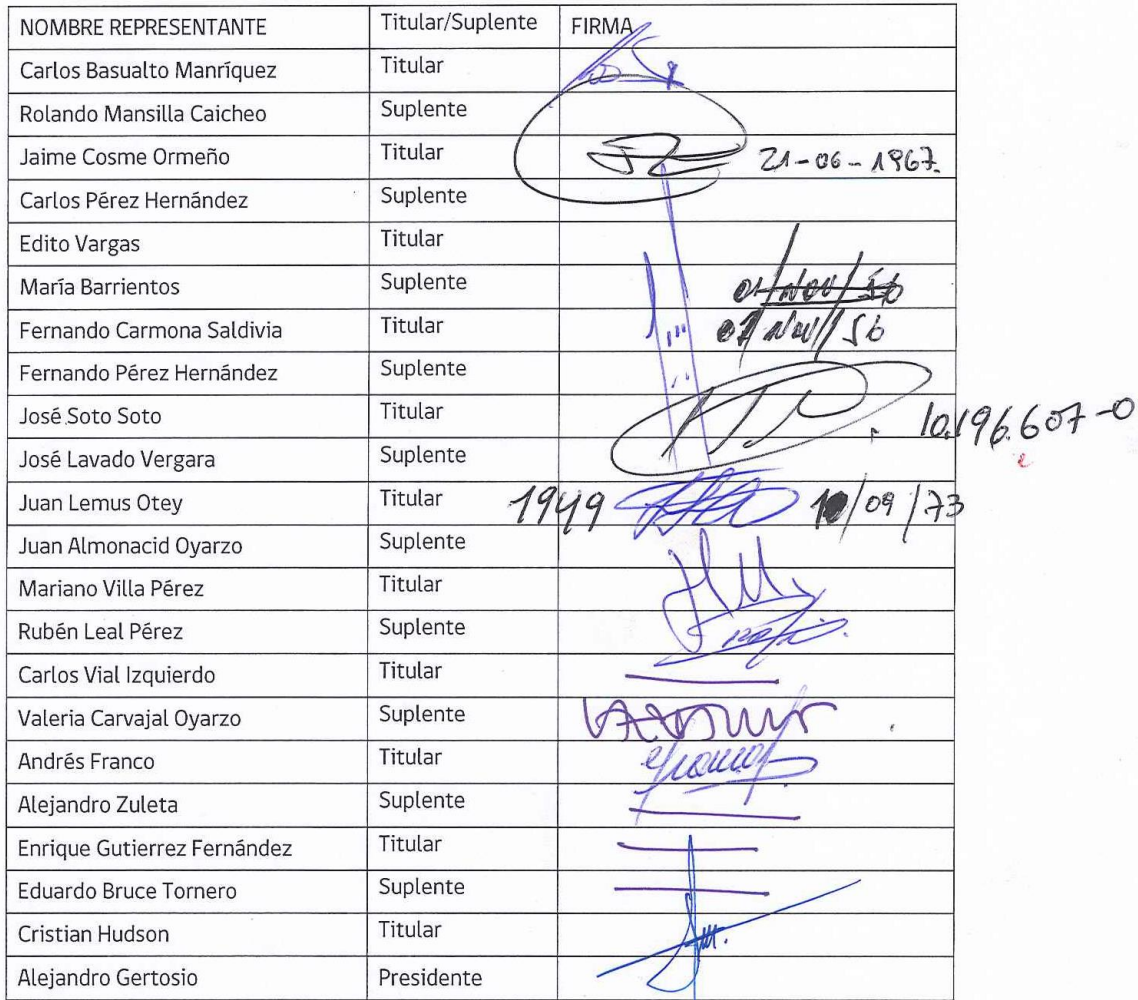 NOMBRE REPRESENTANTE Titular/Suplente FIRMA
Carlos Basualto Manríquez Titular
Rolando Mansilla Caicheo Suplente
Jaime Cosme Ormeño Titular 21-06-1967.
Carlos Pérez Hernández Suplente
Edito Vargas Titular
María Barrientos Suplente 01/NOV/56
Fernando Carmona Saldivia Titular 07/NOV/56
Fernando Pérez Hernández Suplente
José Soto Soto Titular 10.196.607-0
José Lavado Vergara Suplente
Juan Lemus Otey Titular 1949 10/09/73
Juan Almonacid Oyarzo Suplente
Mariano Villa Pérez Titular
Rubén Leal Pérez Suplente
Carlos Vial Izquierdo Titular
Valeria Carvajal Oyarzo Suplente
Andrés Franco Titular
Alejandro Zuleta Suplente
Enrique Gutierrez Fernández Titular
Eduardo Bruce Tornero Suplente
Cristian Hudson Titular
Alejandro Gertosio Presidente